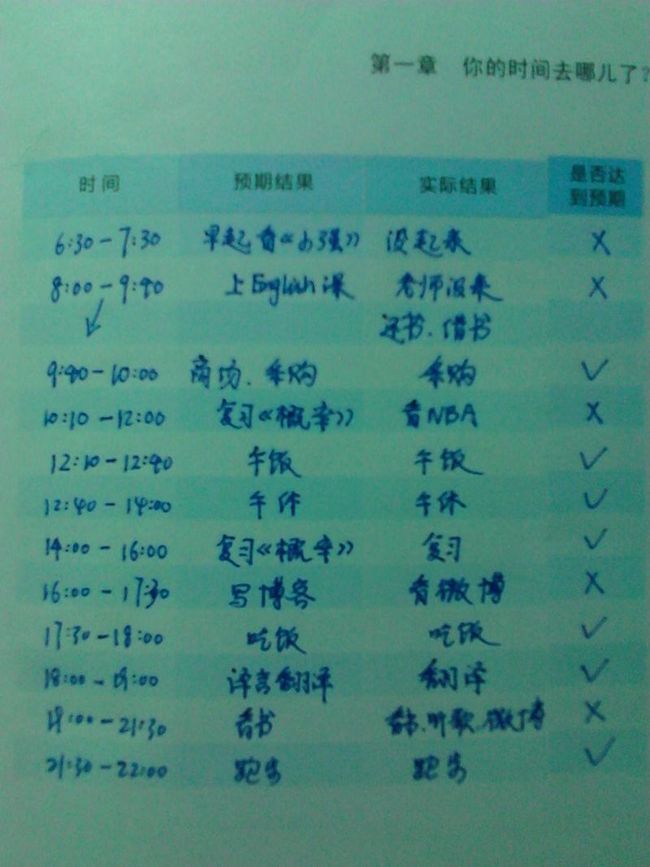 第一章 你的时间去哪儿了?
时间 预期结果 实际结果 是否达到预期
6:30-7:30 早起看《小强》 没起来 ×
8:00-9:40 上English课 老师没来 ×
还书、借书
9:40-10:00 商场、采购 采购 ✓
10:10-12:00 复习《概率》 看NBA ×
12:10-12:40 午饭 午饭 ✓
12:40-14:00 午休 午休 ✓
14:00-16:00 复习《概率》 复习 ✓
16:00-17:30 写博客 看微博 ×
17:30-18:00 吃饭 吃饭 ✓
18:00-19:00 译言翻译 翻译 ✓
19:00-21:30 看书 看书、听歌、微博 ×
21:30-22:00 跑步 跑步 ✓